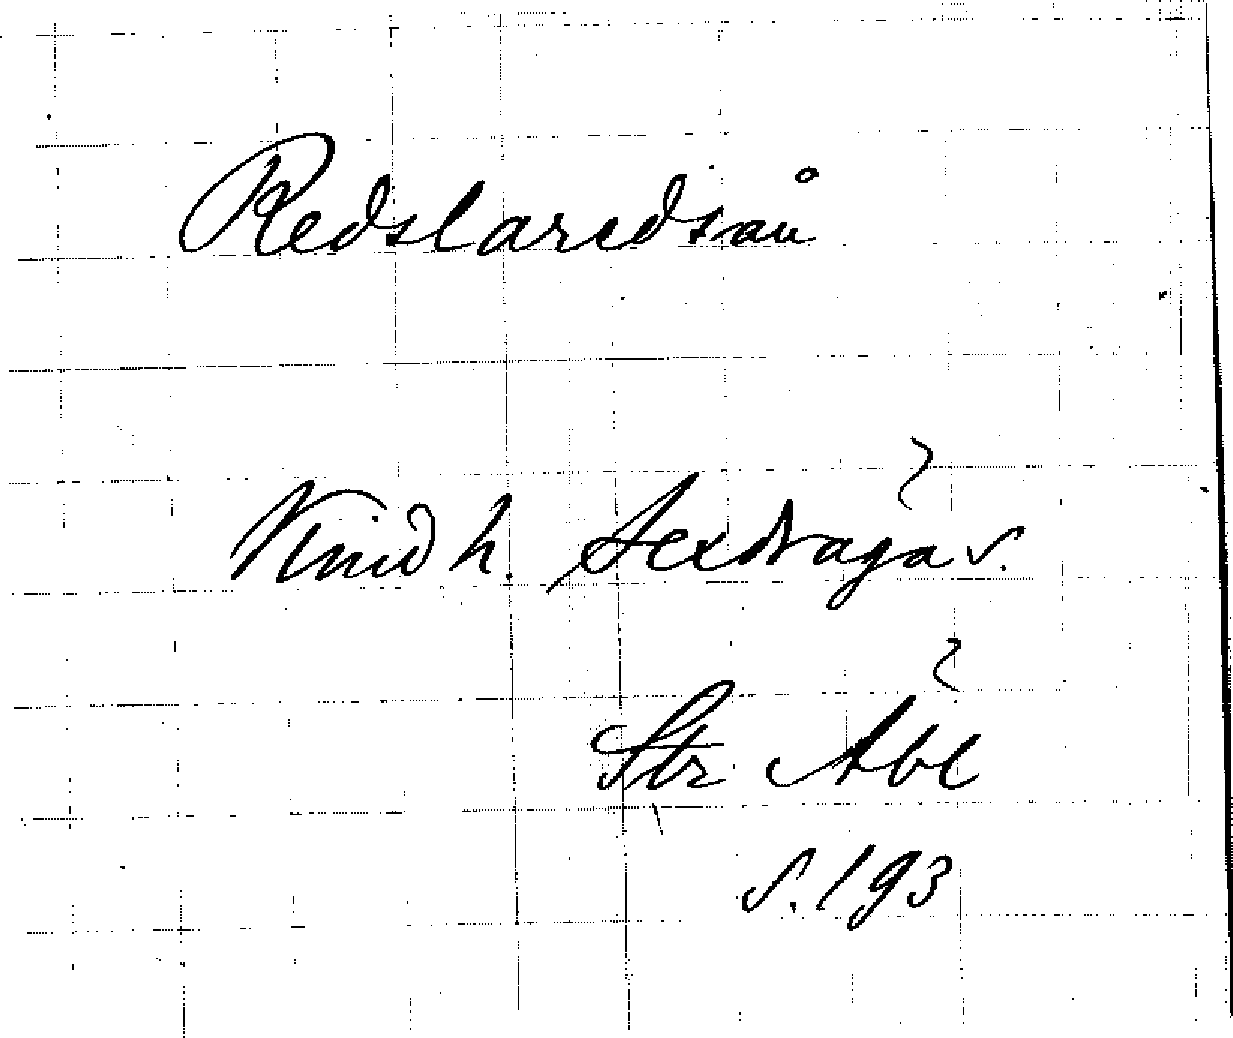 Redslaredsån
Kind h. Sexdraga s.
Str Åbl
s. 193